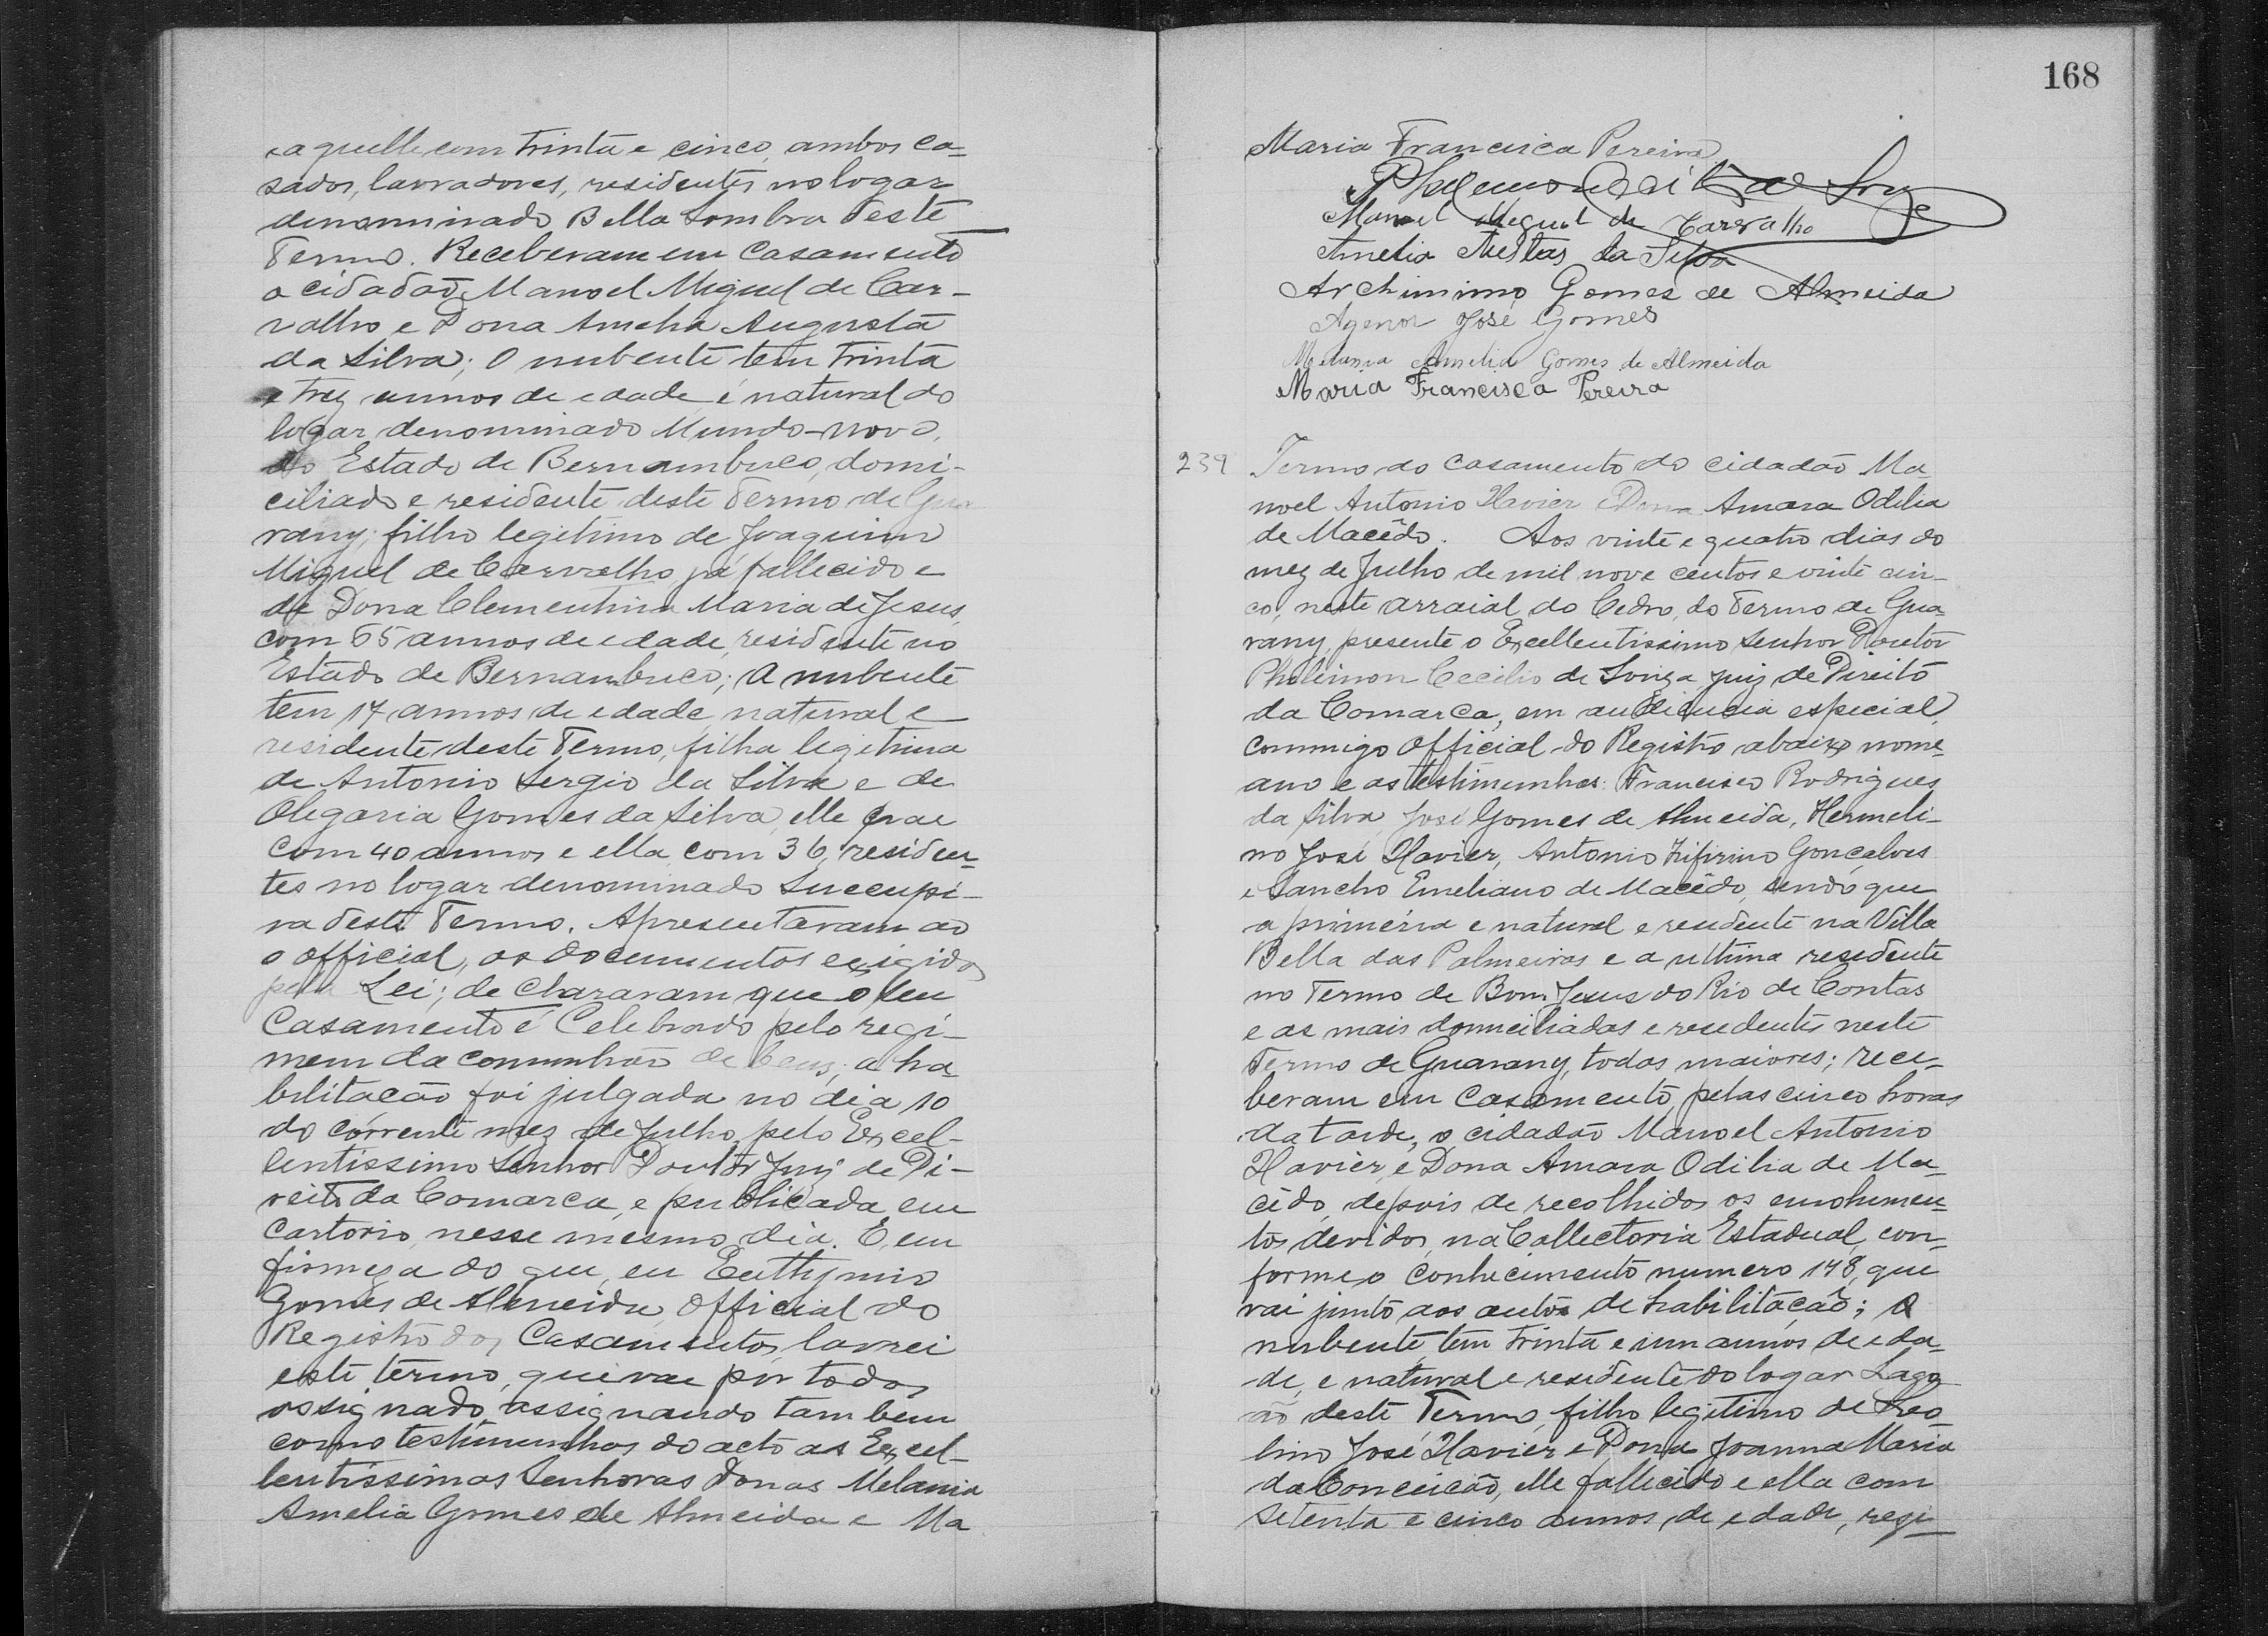 aquelle com trinta e cinco, ambos ca-
sados, lavradores, residentes no logar
denominado Bella Sombra deste
Termo. Receberam em Casamento
o cidadão Manoel Miguel de Car-
valho e Dona Amelia Augusta
da Silva; O nubente tem trinta
e trez annos de edade, é natural do
logar denominado Mundo-novo,
do Estado de Bernambuco, domi-
ciliado e residente deste Termo de Gua
rany; filho legitimo de Joaquim
Miguel de Carvalho já fallecido e
de Dona Clementina Maria de Jesus,
com 65 annos de edade, residente no
Estado de Bernambuco; A nubente
tem 17 annos de edade natural e
residente deste Termo, filha legitima
de Antonio Sergio da Silva e de
Olegaria Gomes da Silva, elle
com 40 annos e ella com 36, residen-
tes no logar denominado Succupi-
ra deste Termo. Apresentaram ao
o official, os documentos exigidos
pela Lei; de Chararam que o seu
Casamento é Celebrado pelo regi-
mem da comunhão de bens; a ha-
bilitação foi julgada no dia 10
do corrente mez de Julho, pelo Excel-
lentissimo Senhor Doutor Juiz de Di-
reito da Comarca, e publicada em
Cartorio, nesse mesmo dia. E, em
firmeza do que, eu Euthymio
Gomes de Almeida, Official do
Registro dos Casamentos, lavrei
este termo, que vae por todos
assignado, assignando tambem
como testimunhas do acto as Excel-
lentissimas Senhoras Donas Melania
Amelia Gomes de Almeida e Ma
168
Maria Francisca Pereira
Manoel Miguel de Carvalho
Amelia da Silva
Archimimo Gomes de Almeida
Agenor José Gomes
Melania Amelia Gomes de Almeida
Maria Francisca Pereira
239 Termo do casamento do cidadão Ma
noel Antonio Xavier e Dona Amara Odilia
de Macêdo. Aos vinte e quatro dias do
mez de Julho de mil nove centos e vinte cin-
co, neste arraial do Cedro, do Termo de Gua-
rany, presente o Excellentissimo Senhor Doutor
Philimon Cecilio de Souza Juiz de Direito
da Comarca, em audiencia especial,
commigo Official do Registro abaixo nome-
ano e as testimunhas: Francisco Rodrigues
da Silva, José Gomes de Almeida, Hermeli-
no José Xavier, Antonio Zifirino Gonçalves
e Sancho Emeliano de Macêdo, sendo que
a primeira e natural e residente na Villa
Bella das Palmeiras e a ultima residente
no Termo de Bom Jesus do Rio de Contas
e as mais domiciliadas e residentes neste
Termo de Guarany, todas maiores; rece-
beram em Casamento, pelas cinco horas
da tarde, o cidadão Manoel Antonio
Xavier, e Dona Amara Odilia de Ma-
cêdo, depois de recolhidos os emolumen-
tos devidos, na Collectoria Estadual, con-
forme o Conhecimento numero 148, que
vai junto aos autos de habilitação; O
nubente, tem trinta e um annos de eda-
de, e natural e residente do logar Lago
ão deste Termo, filho legitimo de
lino José Xavier e Dona Joanna Maria
da Conceicão, elle fallecido e ella com
setenta e cinco annos de edade, resi-